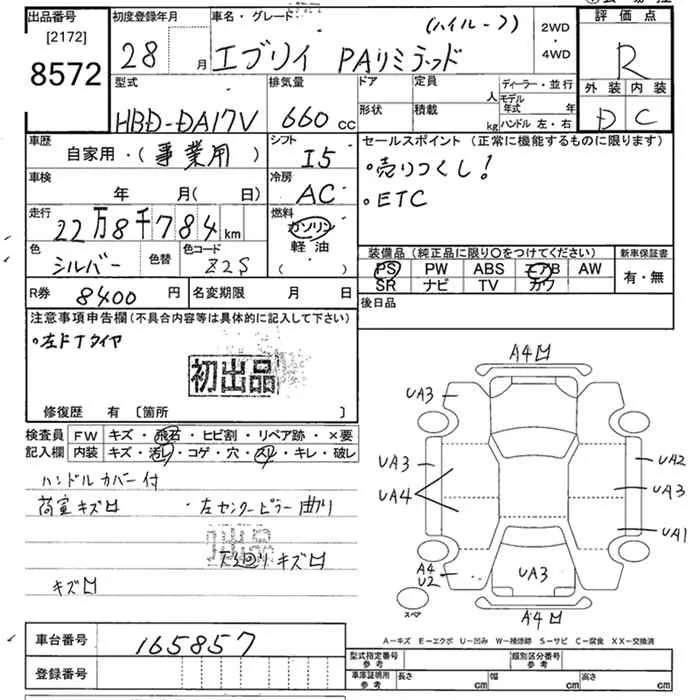 出品番号 初度登録年月 車名・グレード (ハイルーフ) 2WD 評価点
[2172] 28 月 エブリイ PAリミテッド ・4WD R
8572
型式 排気量 ドア 定員 人 ディーラー・並行 外装 内装
HBD-DA17V 660 cc 形状 積載 kg モデル年式 年 D C
ハンドル 左・右
車歴 自家用・(事業用) シフト I5 セールスポイント (正常に機能するものに限ります)
車検 年 月(日) 冷房 AC ・売りつくし!
・ETC
走行 22万8千784km 燃料 ガソリン
軽油
( )
色 シルバー 色替 色コード Z2S
装備品 (純正品に限り〇をつけてください) 新車保証書
PS PW ABS エアB AW 有・無
SR ナビ TV カワ
R券 8400円 名変期限 月 日 後日品
注意事項申告欄 (不具合内容等は具体的に記入して下さい)
・左ドTタイヤ
初出品
修復歴 有 〔箇所 〕
検査員 FW キズ・飛石・ヒビ割・リペア跡・×要
記入欄 内装 キズ・汚レ・コゲ・穴・スレ・キレ・破レ
ハンドルカバー付
荷室キズ凹 ・左センターピラー曲り
初出品
キズ凹
キズ凹
A4凹
UA3
UA3
UA4
UA2
UA3
UA1
A4
U2
UA3
スペア
A4凹
A-キズ E-エクボ U-凹み W-補修跡 S-サビ C-腐食 XX-交換済
車台番号 165857
登録番号
型式指定番号 参考 類別区分番号 参考
車庫証明用 参考 長さ cm 幅 cm 高さ cm